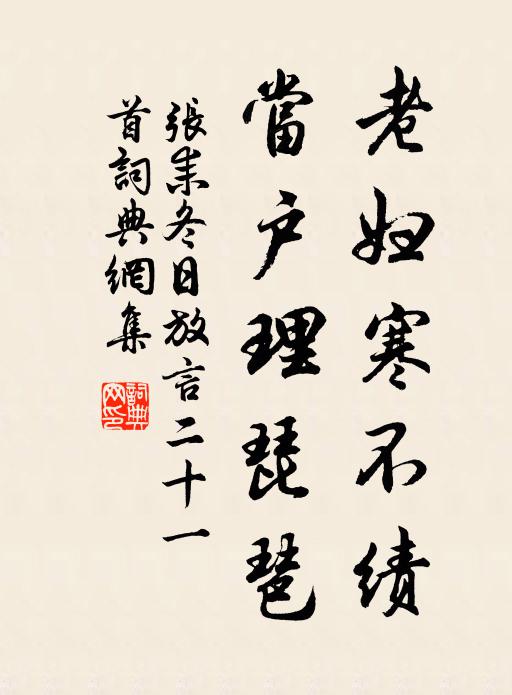 老妇寒不績
當户理琵琶
張耒冬日放言二十一
首詞典網集
詞典
网印